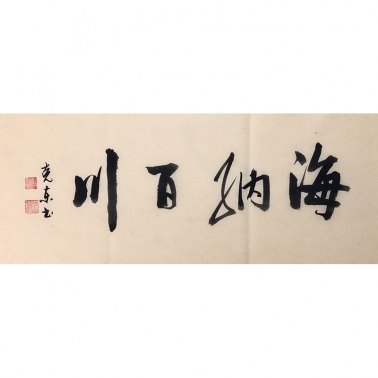 海纳百川
克东书